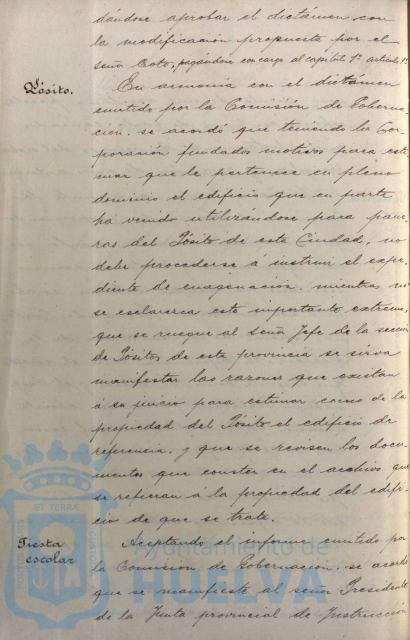 dándose aprobar el dictámen con
la modificación propuesta por el
señor Coto, pagándose con cargo al capítulo 1º artículo 1º
Pósito.
En armonia con el dictámen
emitido por la Comisión de Goberna-
cion, se acordó que teniendo la Cor-
poración fundados motivos para esti-
mar que le pertenece en pleno
dominio el edificio que en parte
ha venido utilizandose para pane-
ras del Pósito de esta Ciudad, no
debe procederse á instruir el expe-
diente de enagenación, mientras no
se esclarezca este importante extremo,
que se ruegue al señor Jefe de la sección
de Pósitos de esta provincia se sirva
manifestar las razones que existan
á su juicio para estimar como de la
propiedad del Pósito el edificio de
referencia, y que se revisen los docu-
mentos que consten en el archivo que
se refieran á la propiedad del edifi-
cio de que se trate.
Fiesta
escolar
Aceptando el informe emitido por
la Comisión de Gobernación, se acordó
que se manifieste al señor Presidente
de la Junta provincial de Instrucción
ET TERRÆ
Ayuntamiento de
HUELVA